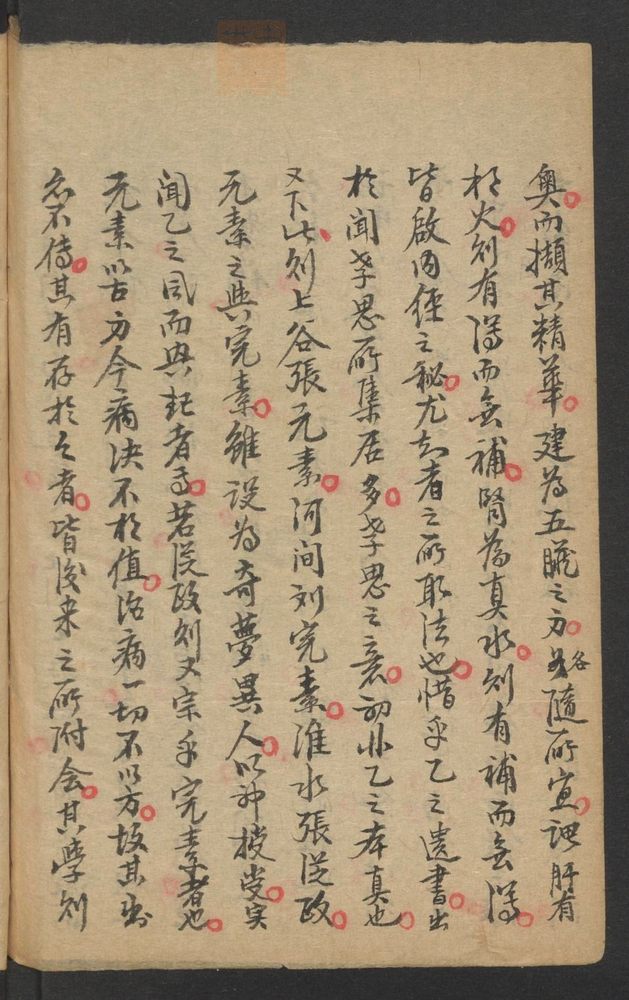 奧而擷其精華建為五臟之方各隨所宜謂肝有
相火則有瀉而無補腎為真水則有補而無瀉
皆啟內經之秘尤知者之所取法也惜乎乙之遺書出
於閻孝忠所集居多孝忠之意初非乙之本真也
又下此則上谷張元素河間刘完素淮水張從政
元素之與完素雖設為奇夢異人以神授受实
闻乙之风而興起者焉若從政則又宗乎完素者也
元素以古方今病决不相值治病一切不以方故其书
亦不傳其有存於今者皆後来之所附会其學則